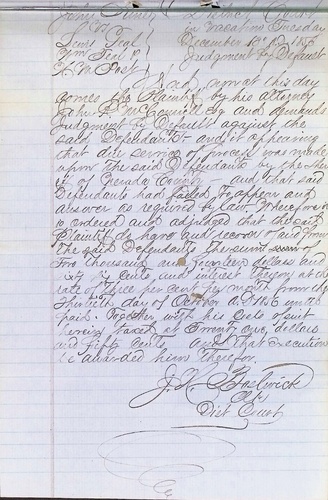 District Court
In Vacation Tuesday
Lewis Teal
Wm Teal &
December 1856
H. M. Post
Judgment by Default
And now at this day
comes the Plaintiff by his attorney
John R. McConnell Esq and demands
Judgment by Default against the
said Defendants and it appearing
that due service of process was made
upon the said Defendants by the Sher
iff of Nevada County and that said
Defendants had failed to appear and
answer as required by Law Wherefore it
is ordered and adjudged that the said
Plaintiff do have and recover of and from
the said Defendants the sum of
Two thousand and fourteen dollars and
sixty cents and interest thereon at the
rate of three per cent per month from the
thirtieth day of October A D 1856 until
paid. Together with his costs of suit
herein taxed at Twenty one dollars
and fifty cents and that execution
be awarded him therefor.
J. H. Bostwick
Clk
Dist Court